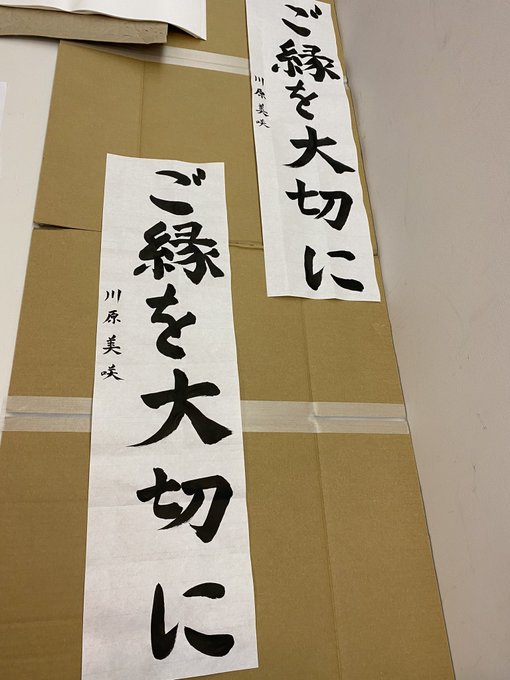 ご縁を大切に
川原美咲
ご縁を大切に
川原美咲